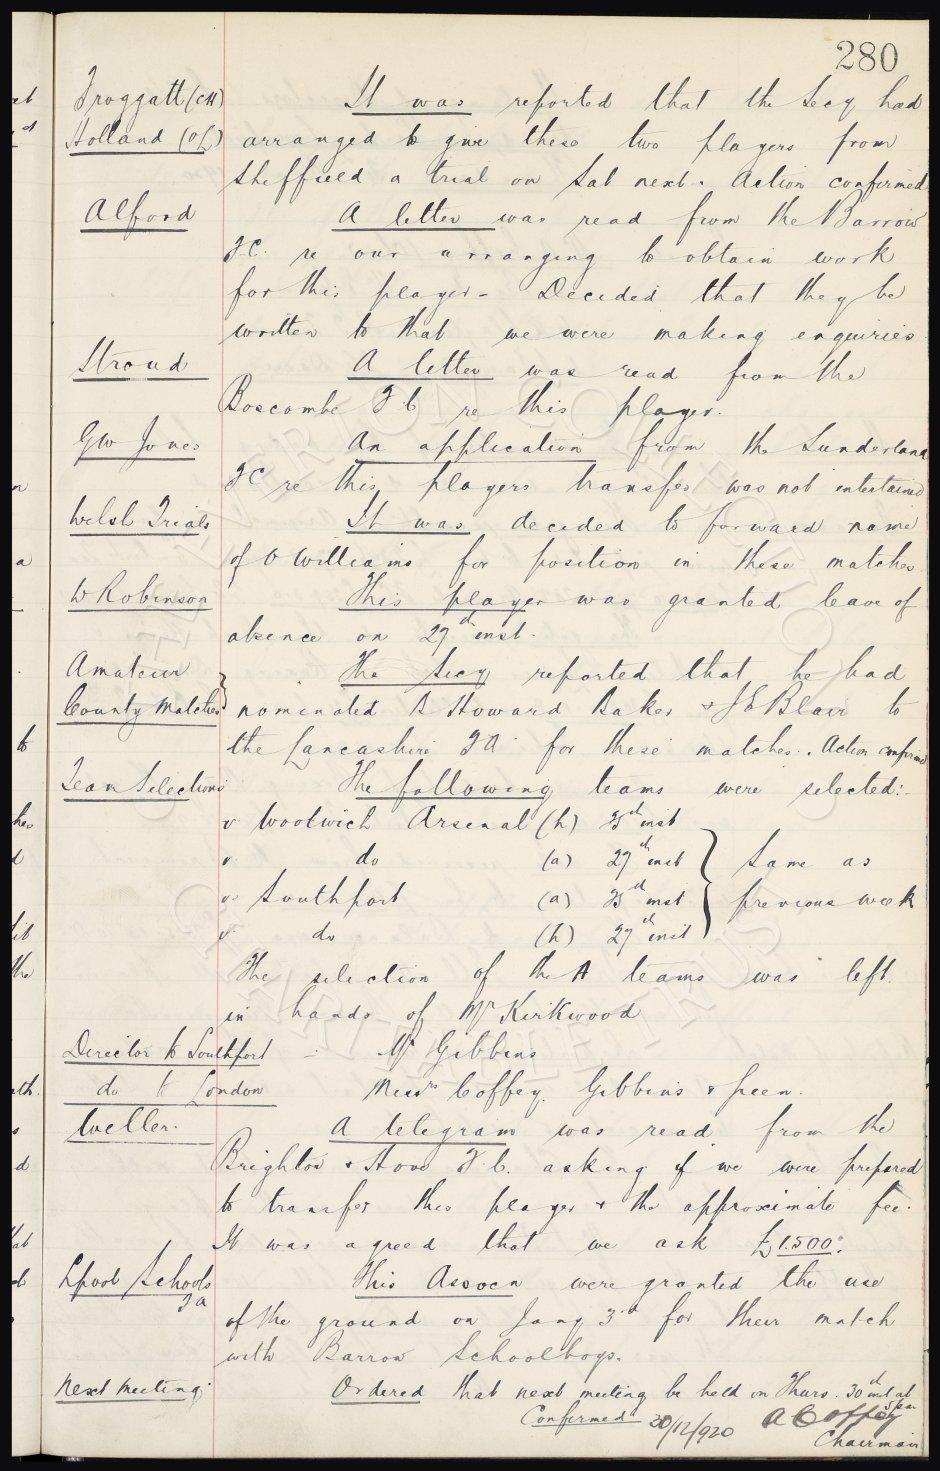 280
Froggatt (CH) It was reported that the Secy had
Holland (OL) arranged to give these two players from
Sheffield a trial on Sat next. Action confirmed
Alford A letter was read from the Barrow
F.C. re our arranging to obtain work
for this player - Decided that they be
written to that we were making enquiries
Stroud A letter was read from the
Boscombe F.C. re this player.
GW Jones An application from the Sunderland
FC re this players transfer was not entertained
Welsh Trials It was decided to forward name
of O Williams for position in these matches
W Robinson This player was granted leave of
absence on 27th inst.
Amateur The Secy reported that he had
County Matches nominated B Howard Baker & J E Blair to
the Lancashire F.A for these matches. Action confirmed
Team Selections The following teams were selected:-
v Woolwich Arsenal (h) 25th inst
v do (a) 27th inst Same as
v Southport (a) 25th inst previous week
v do (h) 27th inst
The selection of the A teams was left
in hands of Mr Kirkwood
Director to Southport - Mr Gibbins
do to London Messrs Coffey Gibbins &
Weller. A telegram was read from the
Brighton & Hove F.C. asking if we were prepared
to transfer this player & the approximate fee.
It was agreed that we ask £1.500.
Lpool Schools This Assocn were granted the use
FA
of the ground on Jany 3rd for their match
with Barrow Schoolboys.
Next Meeting Ordered that next meeting be held on Thurs. 30th inst at
Confirmed 30/12/920 A Coffey
Chairman